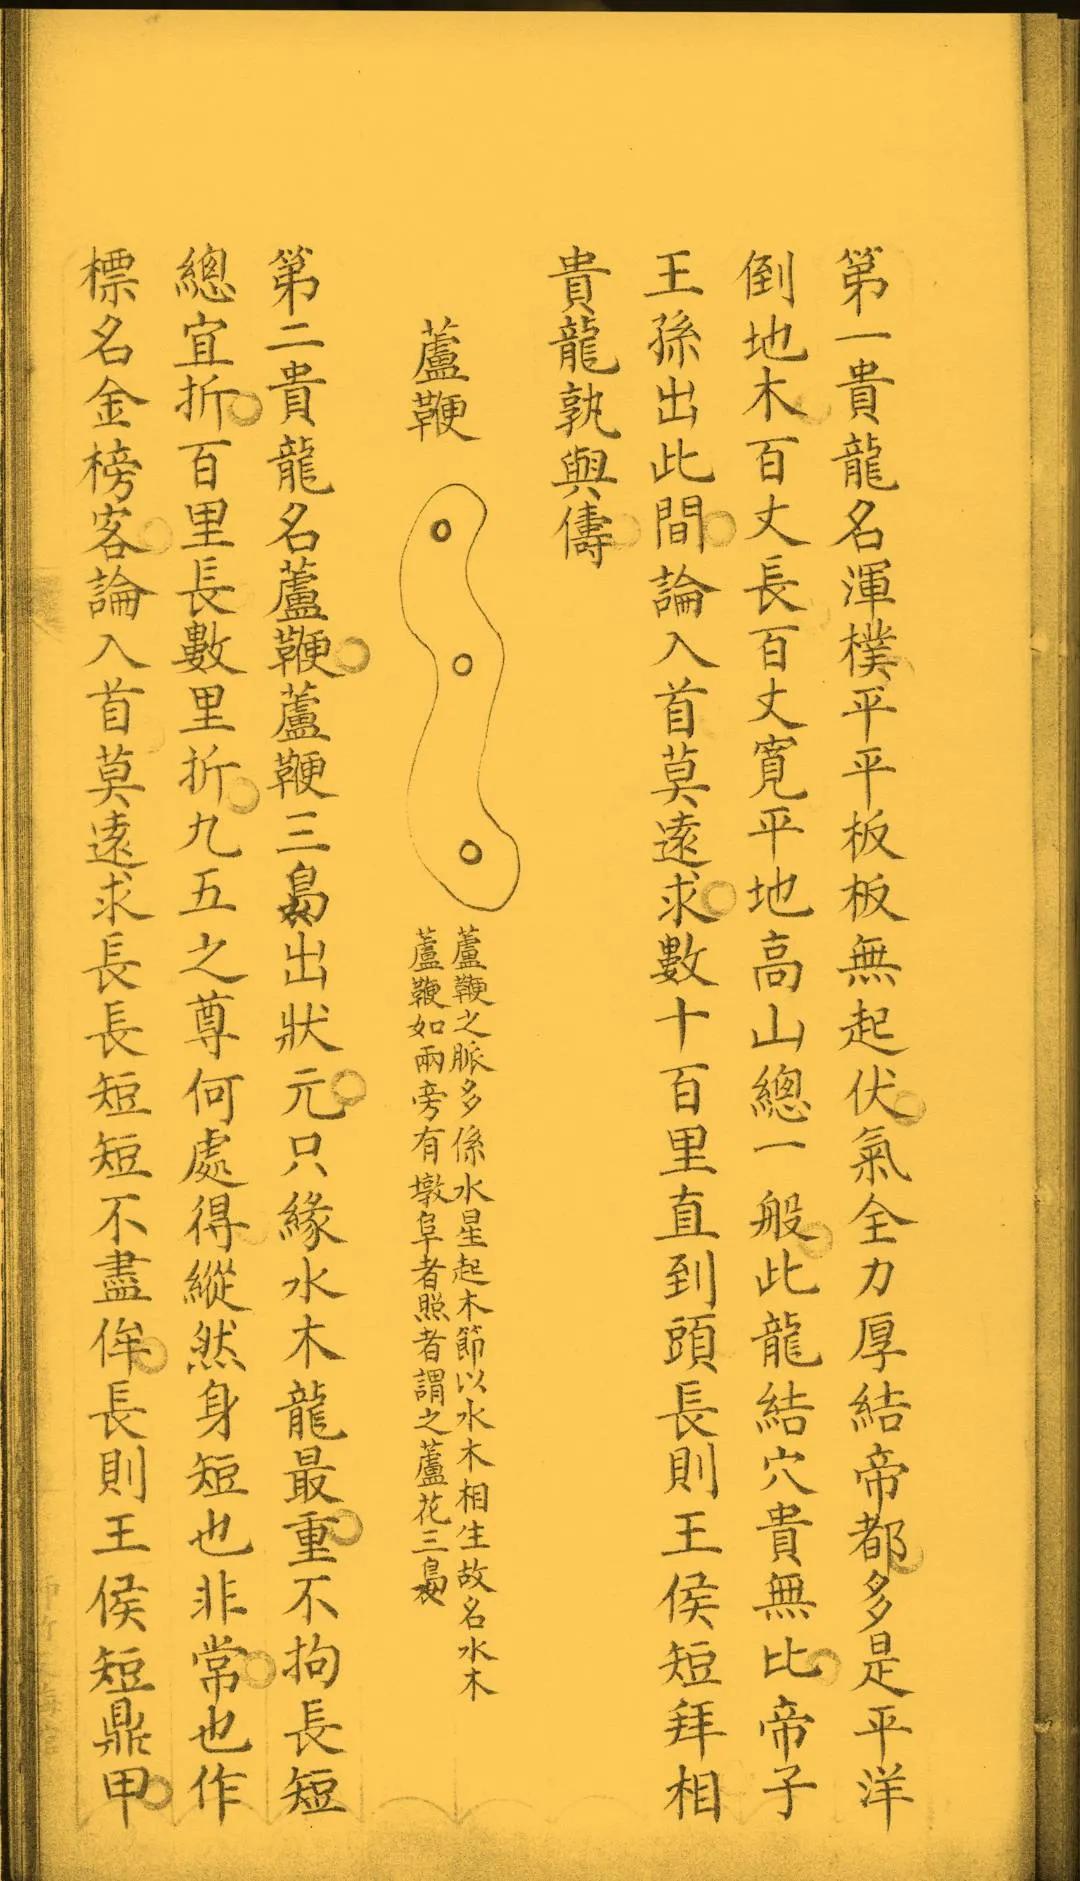 第一貴龍名渾樸平平板板無起伏氣全力厚結帝都多是平洋
倒地木百丈長百丈寬平地高山總一般此龍結穴貴無比帝子
王孫出此間論入首莫遠求數十百里直到頭長則王侯短拜相
貴龍孰與儔
蘆鞭
蘆鞭之脈多係水星起木節以水木相生故名水木
蘆鞭如兩旁有墩阜者照者謂之蘆花三裊
第二貴龍名蘆鞭蘆鞭三裊出狀元只緣水木龍最重不拘長短
總宜折百里長數里折九五之尊何處得縱然身短也非常也作
標名金榜客論入首莫遠求長長短短不盡侔長則王侯短鼎甲